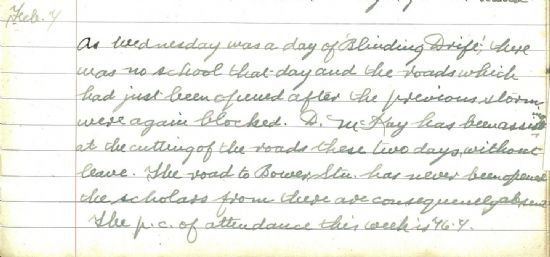 Feb. 7
As Wednesday was a day of 'Blinding Drift', there
was no school that day and the roads which
had just been opened after the previous storm
were again blocked. D. McHay has been assist
ing
at the cutting of the roads these two days, without
leave. The road to Bower Stn. has never been opened
the scholars from there are consequently absent.
The p.c. of attendance this week is 76.7.